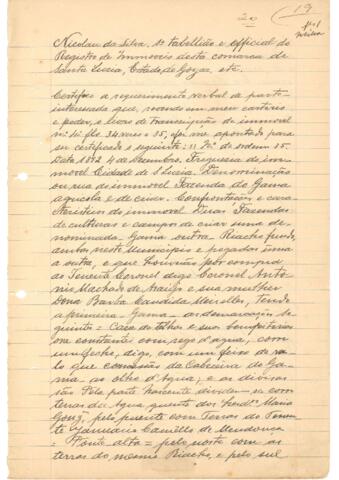 20
19
Nicolau da Silva, 1º tabellião e official do
Registro de Immoveis desta comarca de
Santa Luzia, Estado de Goyaz, etc.
Certifico a requerimento verbal de parte
interessada que, revendo em meu cartorio
e poder, o livro de transcripção de immovel
nº fls 34 verso e 35, foi me apontado para
ser certificado o seguinte: Nº de ordem 35.
Data 18 4 de Dezembro. Freguesia do im-
movel Cidade de S. Luzia. Denominação
ou rua do immovel Fazenda do Gama
agricola e de criar. Confrontações e cara-
cteristicos do immovel Duas Fazendas
de culturas e campos de criar uma de-
nominada Gama outra Riacho fundo
ambas neste Municipio e pegadas uma
a outra, e que houvirão por compra
do Tenente Coronel digo Coronel Anto-
nio Machado de Araujo e sua mulher
Dona Barba Candida Meirelles, Tendo
a primeira - Gama - as demarcações se-
guintes = Casa de telhas e suas bemfeitorias
constantes com rego d'agua, com
um feche, digo, com um feixo de va-
lo que comessão da Cabeceira do Ga-
ma, ao olho d'Agua; e as divisas
são Pela parte nascente divide-se com
terras da Agua quente dos herdrs Maria
Gonz, pelo puente com Terras do Tenen-
te Januario Camillo de Mendonça
= Ponte alta = pelo norte com as
terras do mesmo Riacho e pelo sul